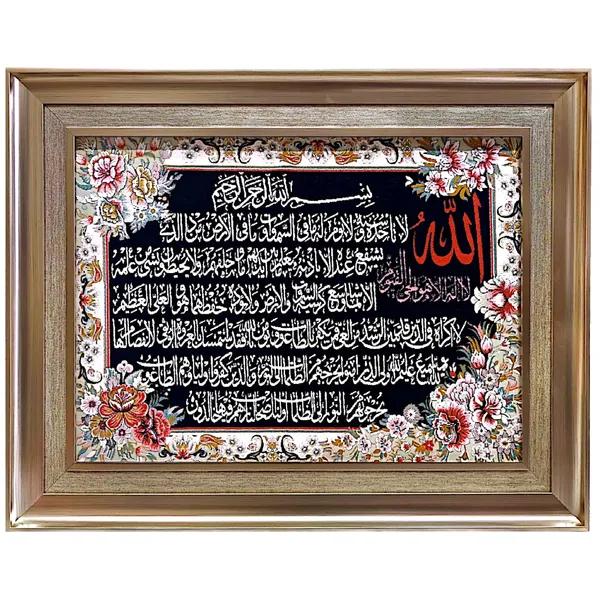 بِسْمِ اللهِ الرَّحْمنِ الرَّحِيمِ
اللهُ
لا اله الا هو الحی القیوم
لا تاخذه سنة ولا نوم له ما فی السموات وما فی الارض من ذا الذی
یشفع عنده الا باذنه یعلم ما بین ایدیهم وما خلفهم ولا یحیطون بشیء من علمه
الا بما شاء وسع کرسیه السموات والارض ولا یؤده حفظهما وهو العلی العظیم
لا اکراه فی الدین قد تبین الرشد من الغی فمن یکفر بالطاغوت ویؤمن بالله فقد استمسک بالعروة الوثقی لا انفصام لها
سمیع علیم الله ولی الذین امنوا یخرجهم من الظلمات الی النور والذین کفروا اولیاؤهم الطاغوت
یخرجونهم من النور الی الظلمات اولئک اصحاب النار هم فیها خالدون